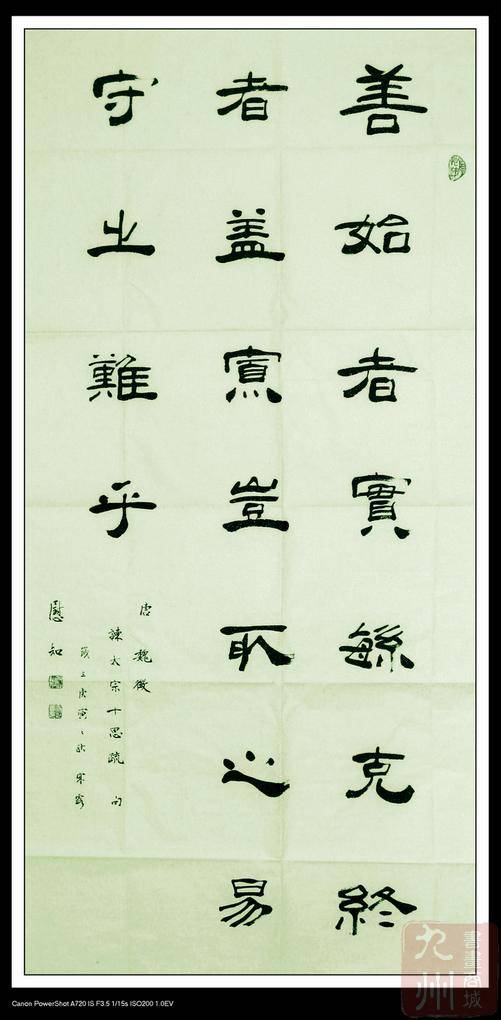 善始者實繇克終
者蓋寡豈取之易
守之難乎
唐魏徵
諫太宗十思疏句
歲在庚寅
慰知
九州
書畫商城
Canon PowerShot A720 IS F3.5 1/15s ISO200 1.0EV